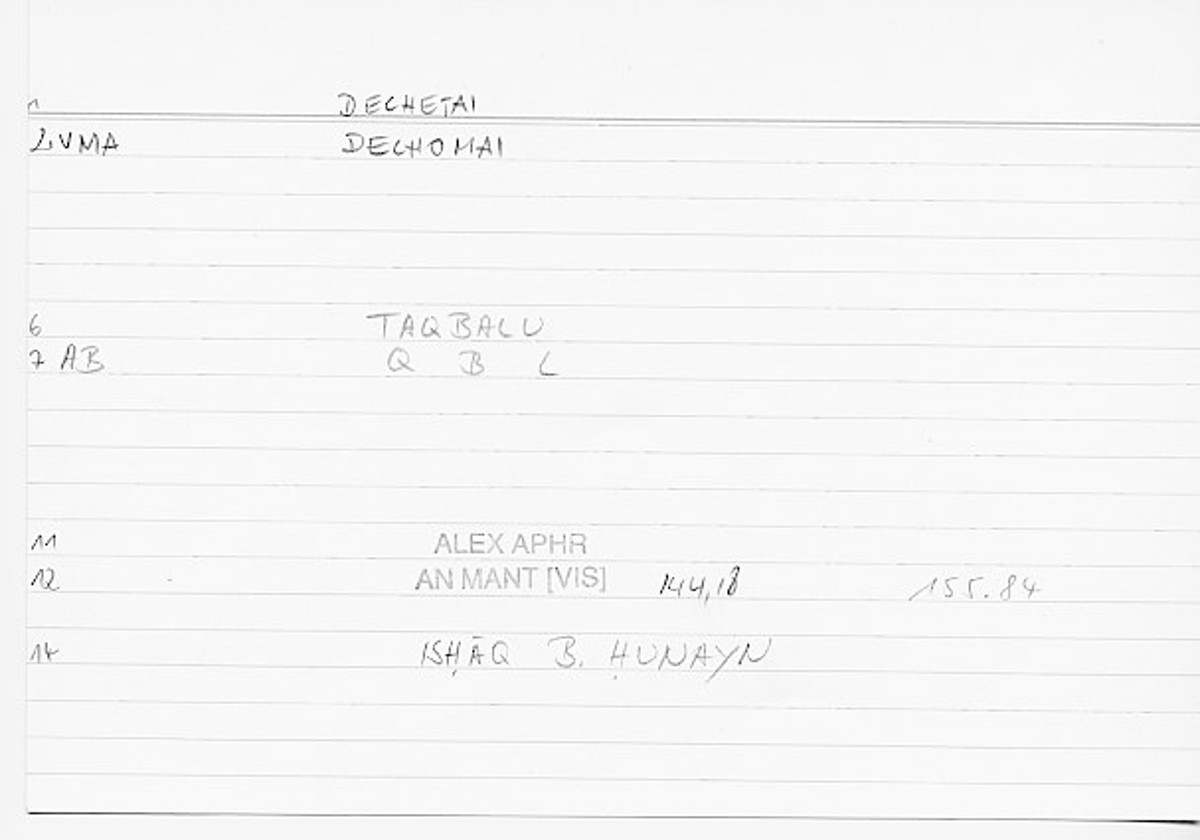 1 DECHETAI
2 VMA DECHOMAI
6 TAQBALU
7 AB Q B L
11 ALEX APHR
12 AN MANT [VIS] 144,18 155.84
14 ISḤĀQ B. ḤUNAYN